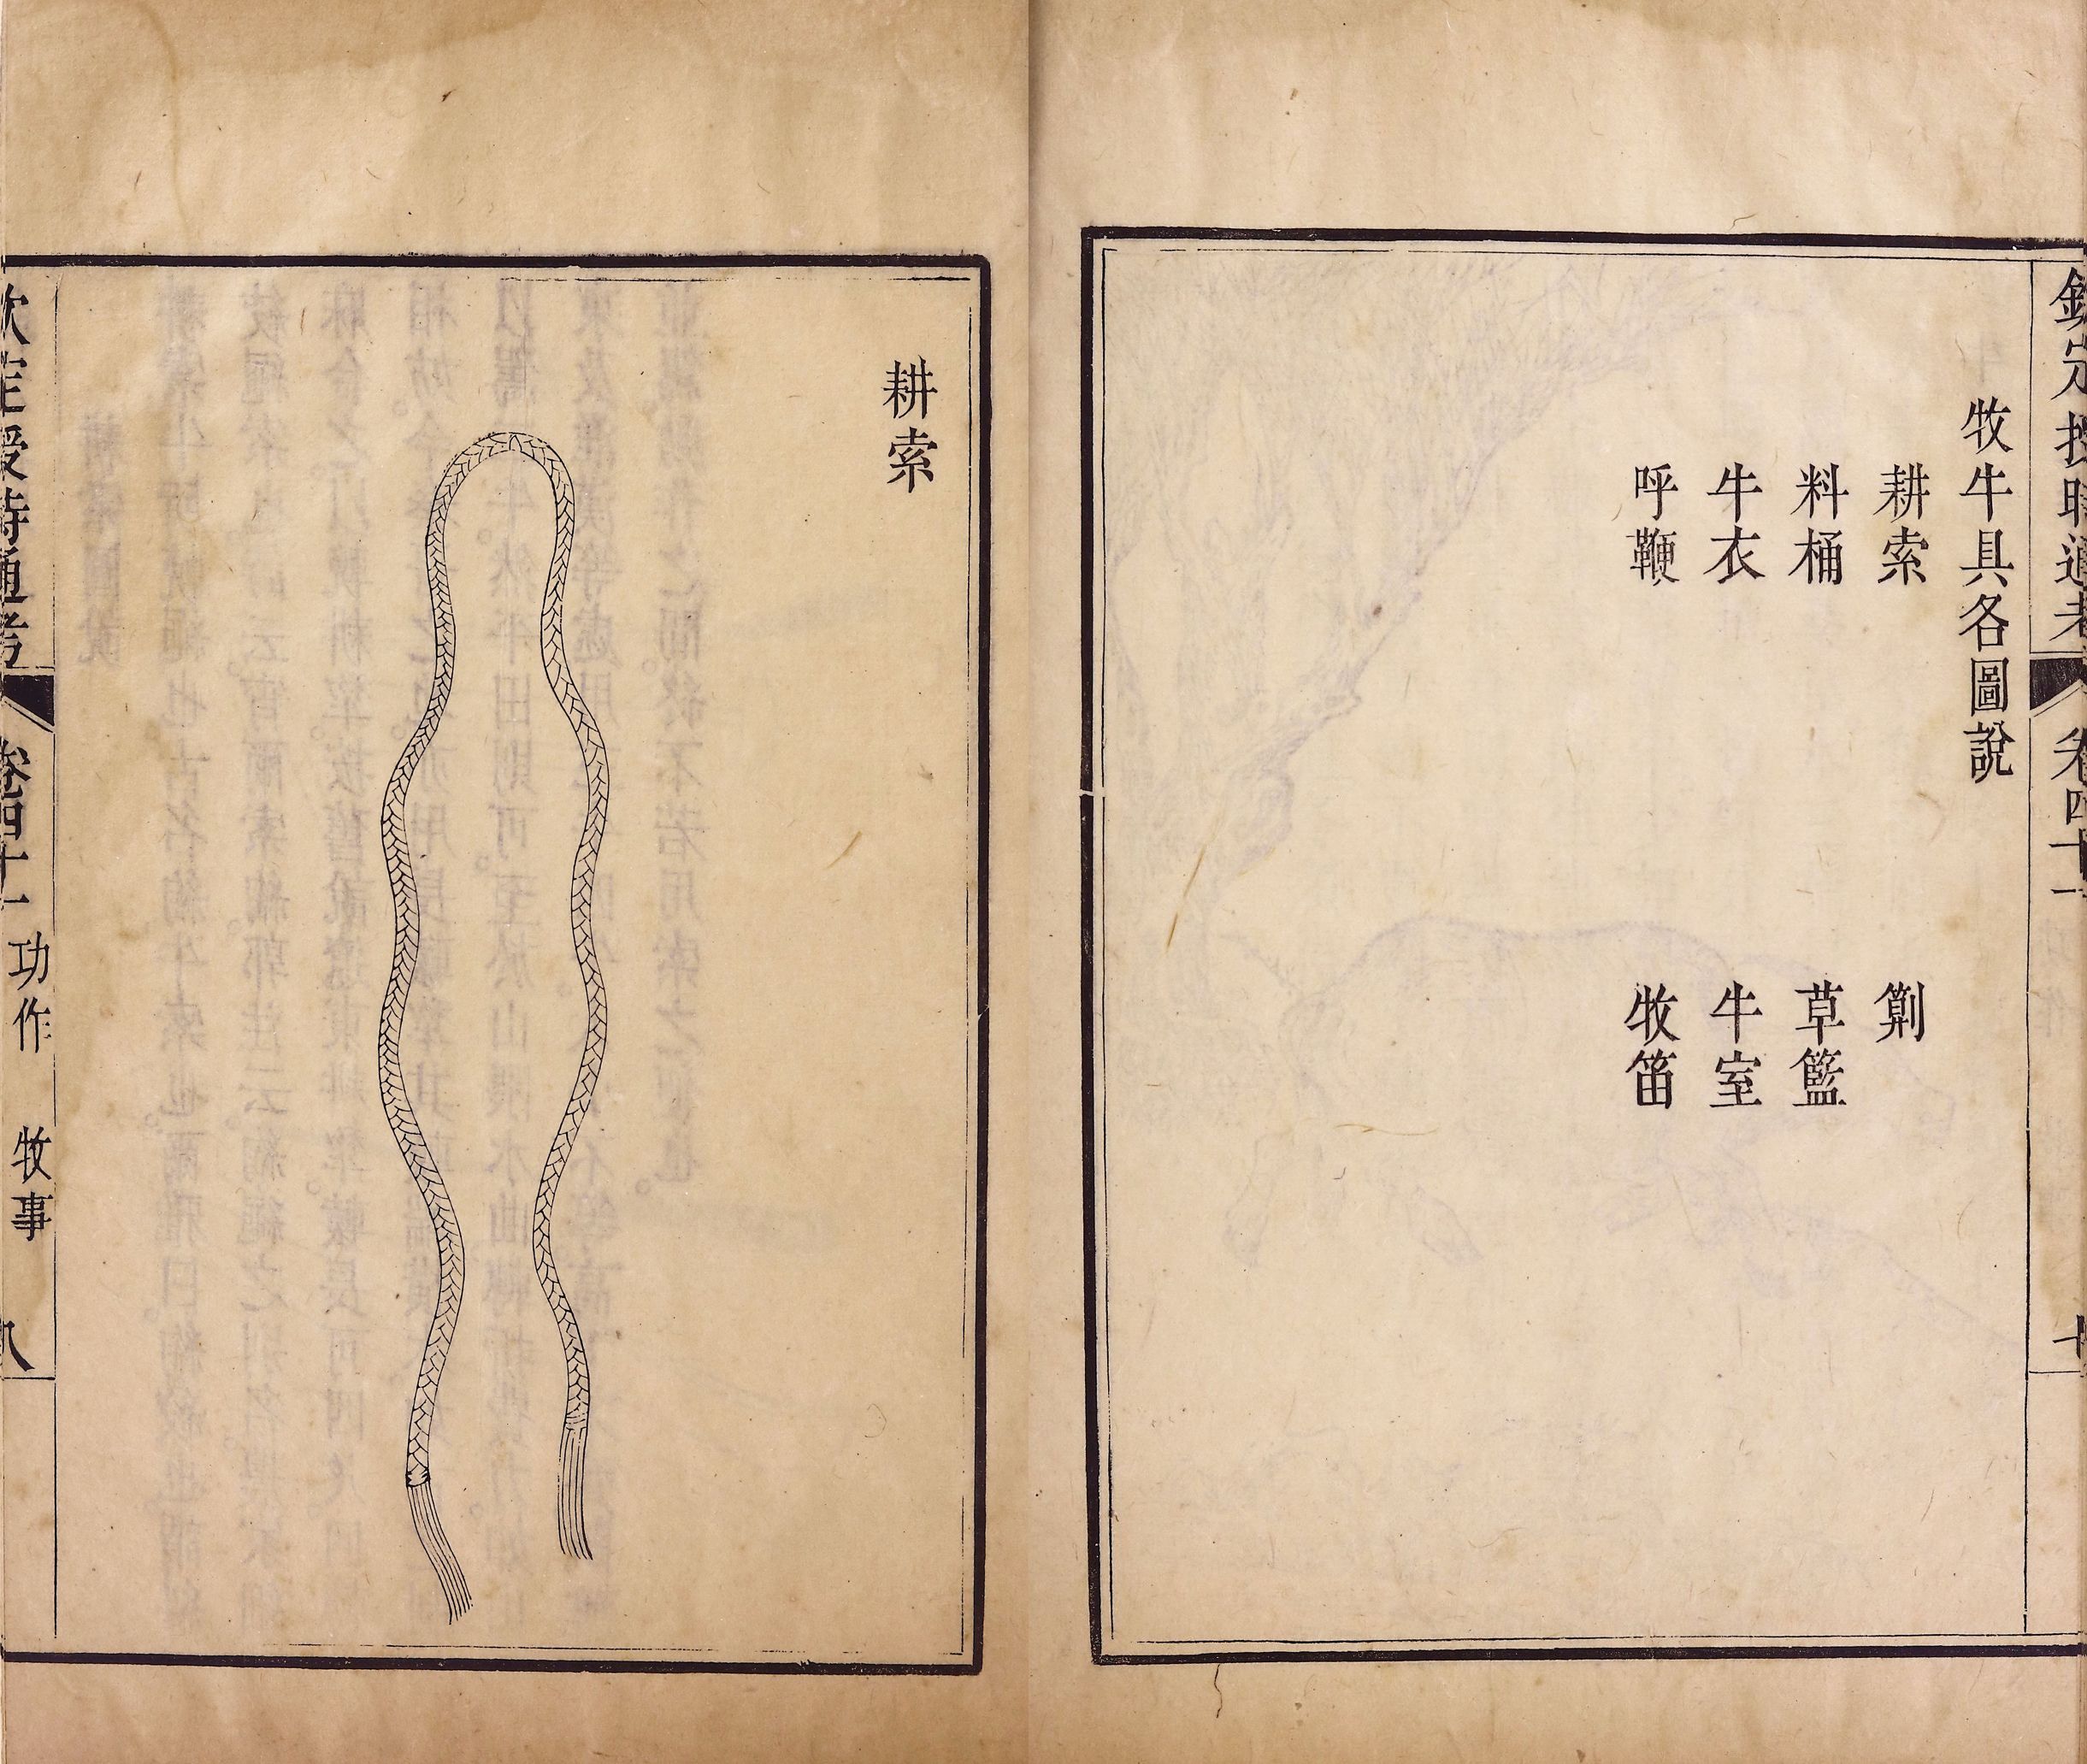 欽定授時通考 卷四十一
牧牛具各圖說
耕索
料桶 草籃
牛衣 牛室
呼鞭 牧笛
耕索
欽定授時通考 卷四十一 功作 牧事 八